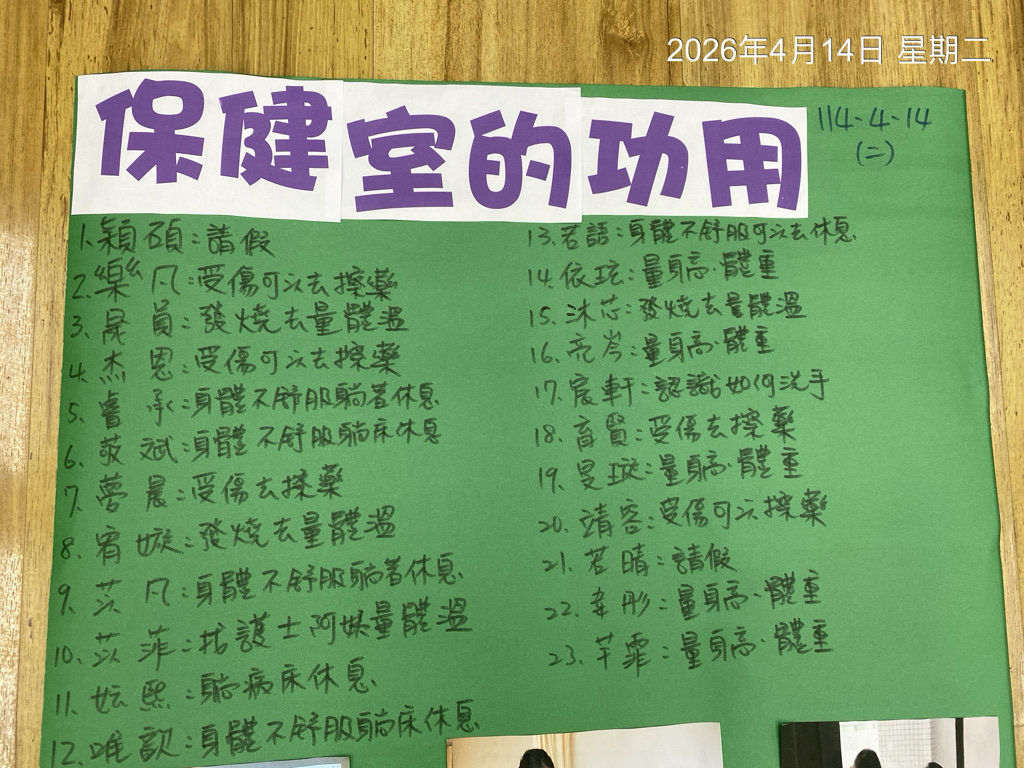 2026年4月14日 星期二
保健室的功用
114-4-14
(二)
1.穎碩:請假
2.樂凡:受傷可以去擦藥
3.晟員:發燒去量體溫
4.杰恩:受傷可以去擦藥
5.睿承:身體不舒服躺著休息
6.斌:身體不舒服躺床休息
7.夢晨:受傷去擦藥
8.宥嫙:發燒去量體溫
9.苡凡:身體不舒服躺著休息
10.苡菲:找護士阿姨量體溫
11.妘熙:躺病床休息
12.唯歆:身體不舒服躺床休息
13.若語:身體不舒服可以去休息
14.依玹:量身高、體重
15.沐芯:發燒去量體溫
16.亮岑:量身高、體重
17.宸軒:認識如何洗手
18.育賢:受傷去擦藥
19.旻璇:量身高、體重
20.靖容:受傷可以擦藥
21.若晴:請假
22.韋彤:量身高、體重
23.芊霏:量身高、體重